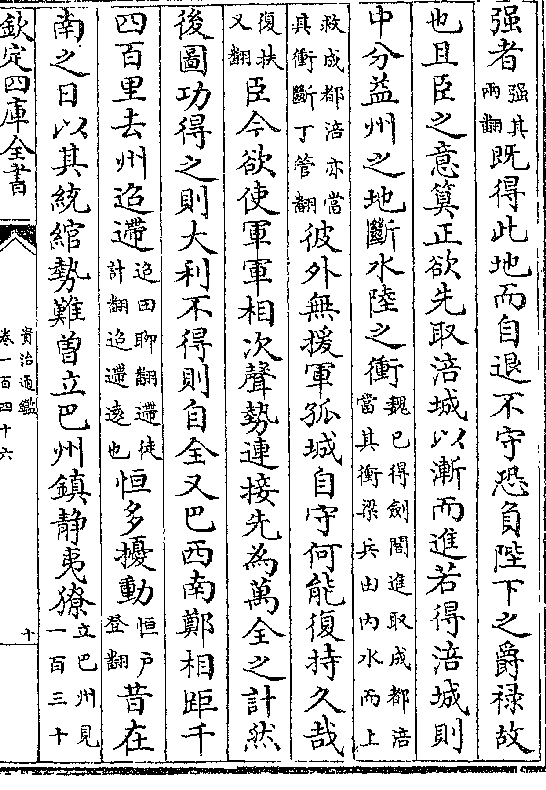 强者强其兩翻既得此地而自退不守恐負陛下之爵禄故
也且臣之意算正欲先取涪城以漸而進若得涪城則
中分益州之地斷水陸之衝魏已得劍閣進取成都涪當其衝梁兵由内水而上
救成都涪亦當其衝斷丁管翻彼外無援軍孤城自守何能復持久哉
復扶又翻臣今欲使軍軍相次聲勢連接先為萬全之計然
後圖功得之則大利不得則自全又巴西南鄭相距千
四百里去州迢遰迢田聊翻遰徒計翻迢遰遠也恒多擾動恒戸登翻昔在
南之日以其統綰勢難曽立巴州鎮静夷獠立巴州見一百三十
欽定四庫全書
資治通鑑
卷一百四十六
十